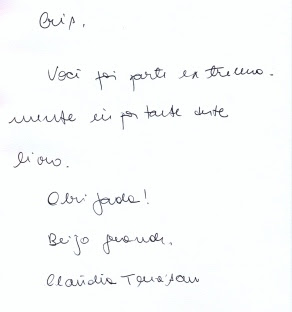 Cris,
Você foi parte extrema-
mente importante deste
livro.
Obrigada!
Beijo grande,
Claudia